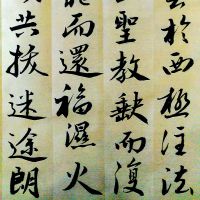 於西極注法
聖教缺而復
而還福濕火
共拔迷途朗